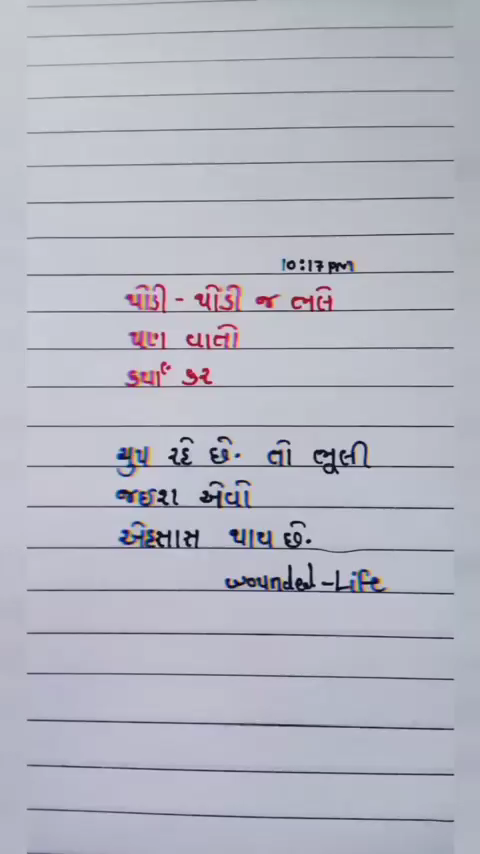 10:17 pm
થોડી - થોડી જ ભલે
પણ વાતો
કર્યા કર
ચુપ રહે છે. તો ભૂલી
જઈશ એવો
એહસાસ થાય છે.
wounded-Life